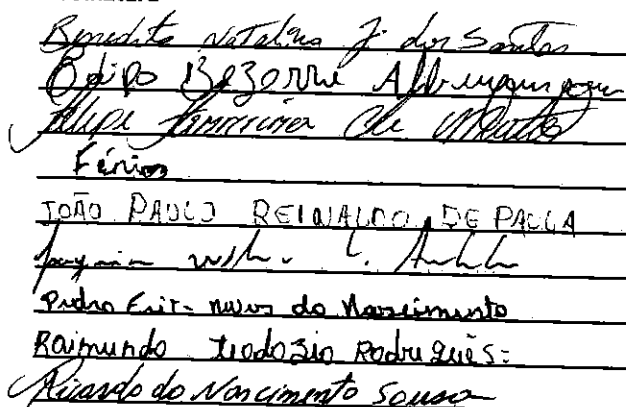 Benedita Natalina J. dos Santos
Edipo Bezerra Albuquerque
Felipe de Matos
Férias
JOÃO PAULO REINALDO DE PAULA
Pedro neves do Nascimento
Raimundo teodozio Rodrigues=
Ricardo do Nascimento Sousa